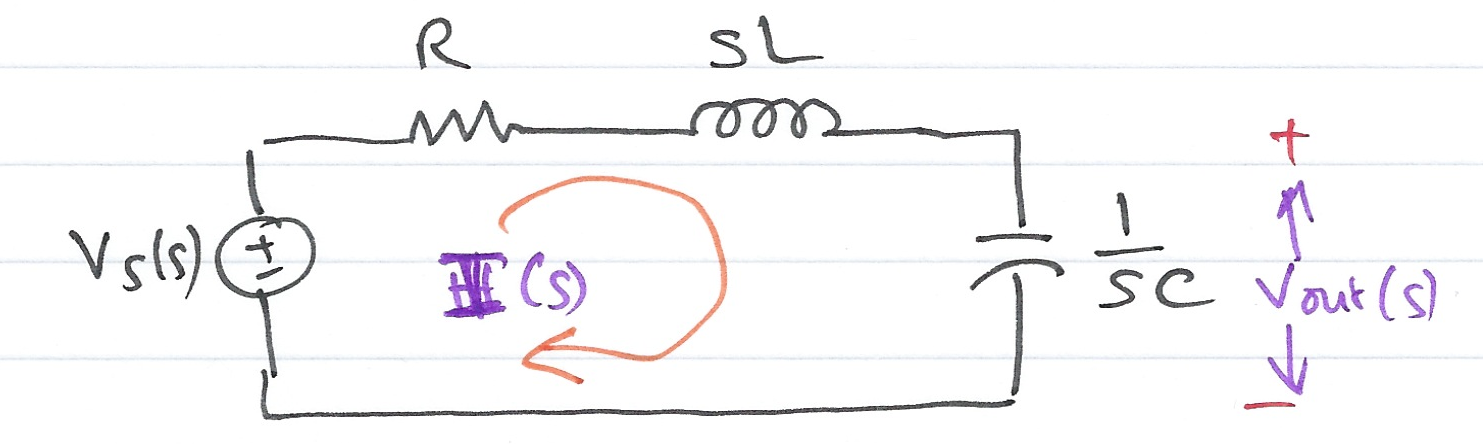 R
SL
+
Vs(s)
+
-
I(s)
1
SC
Vout(s)
-